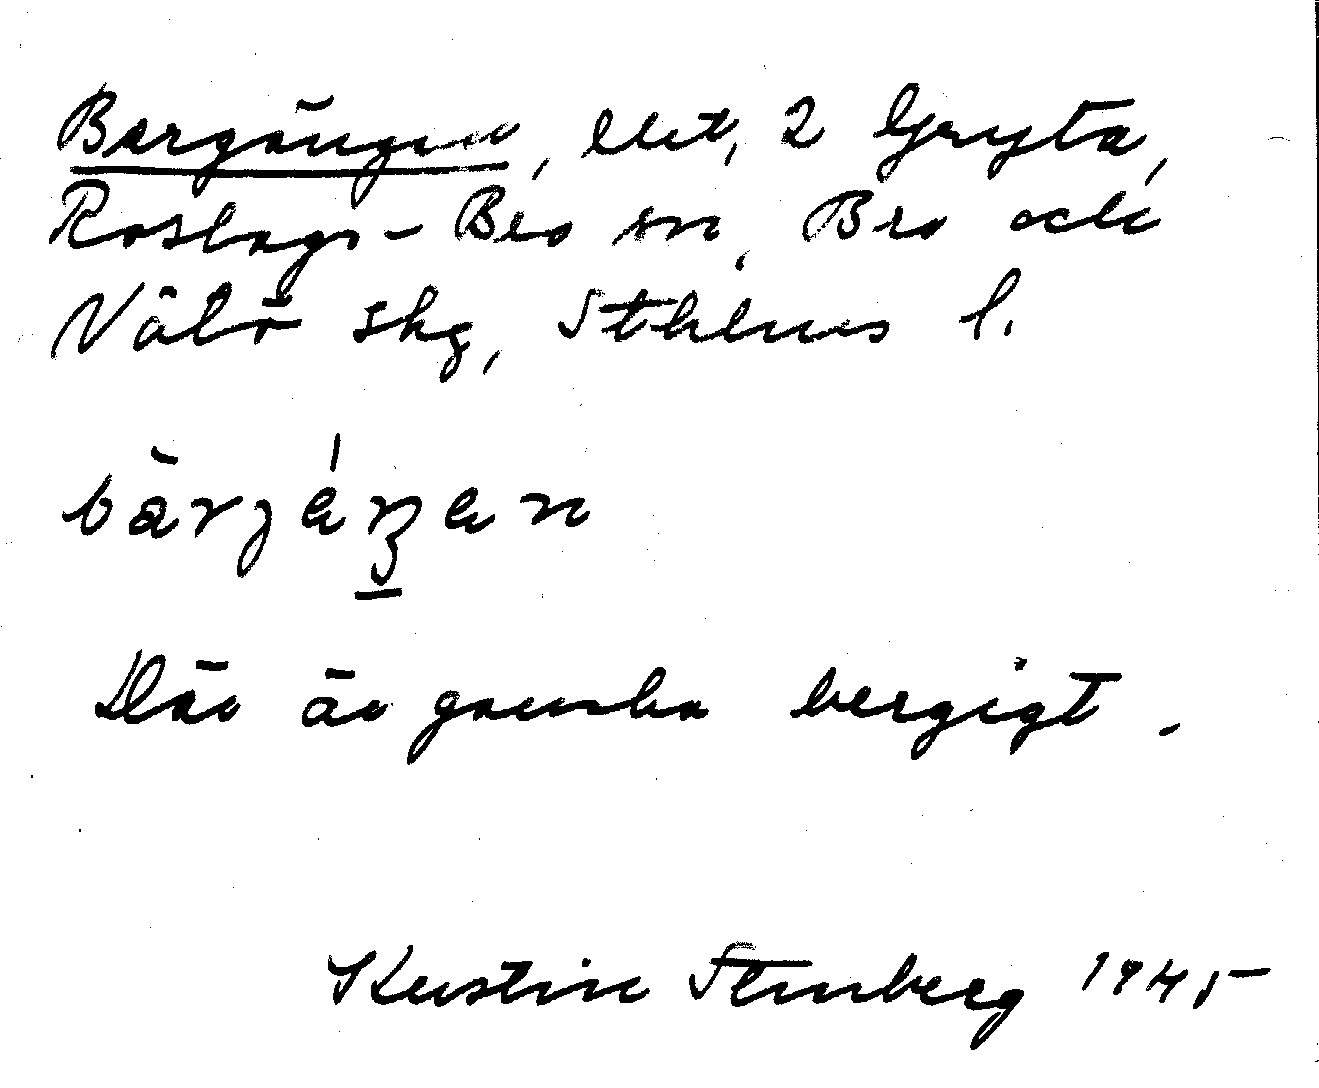 Bargängen, 2 Gryta,
Roslags-Bro sn, Bro och
Vätö skg, Sthlms l.
bàrjáŋen
Där är ganska bergigt.
Kerstin Stenberg 1945